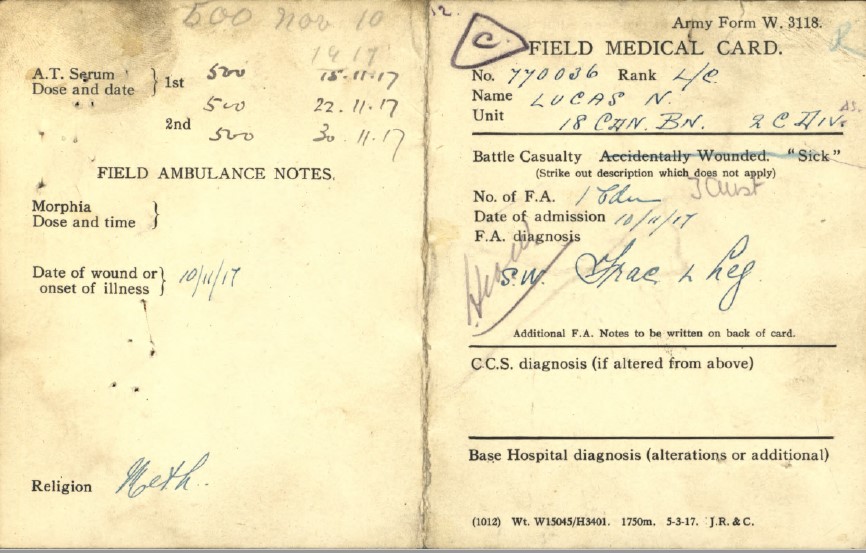 500 Nov 10
1917
A.T. Serum
Dose and date
1st 500 15.11.17
500 22.11.17
2nd
500 30.11.17
FIELD AMBULANCE NOTES.
Morphia
Dose and time
Date of wound or
onset of illness 10/11/17
Religion Meth.
C.
Army Form W. 3118.
FIELD MEDICAL CARD.
No. 770036 Rank L/C
Name LUCAS N.
Unit 18 CAN. BN. 2 C DIV.
Battle Casualty Accidentally Wounded. "Sick"
(Strike out description which does not apply)
No. of F.A. 1
Date of admission 10/11/17
F.A. diagnosis
S.W. Frac L Leg
Additional F.A. Notes to be written on back of card.
C.C.S. diagnosis (if altered from above)
Base Hospital diagnosis (alterations or additional)
(1012) Wt. W15045/H3401. 1750m. 5-3-17. J.R. & C.